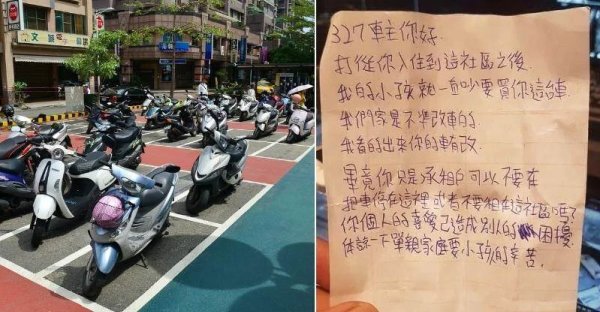 327車主你好.
打從你入住到這社區之後
我的小孩就一直吵要買你這台車
我們家是不準改車的
我看的出來你的車有改.
畢竟你只是承租戶可以不要在
把車停在這裡或者不要租在這社區嗎?
你個人的喜愛已造成別人的困擾
体諒一下單親家庭養小孩的辛苦.